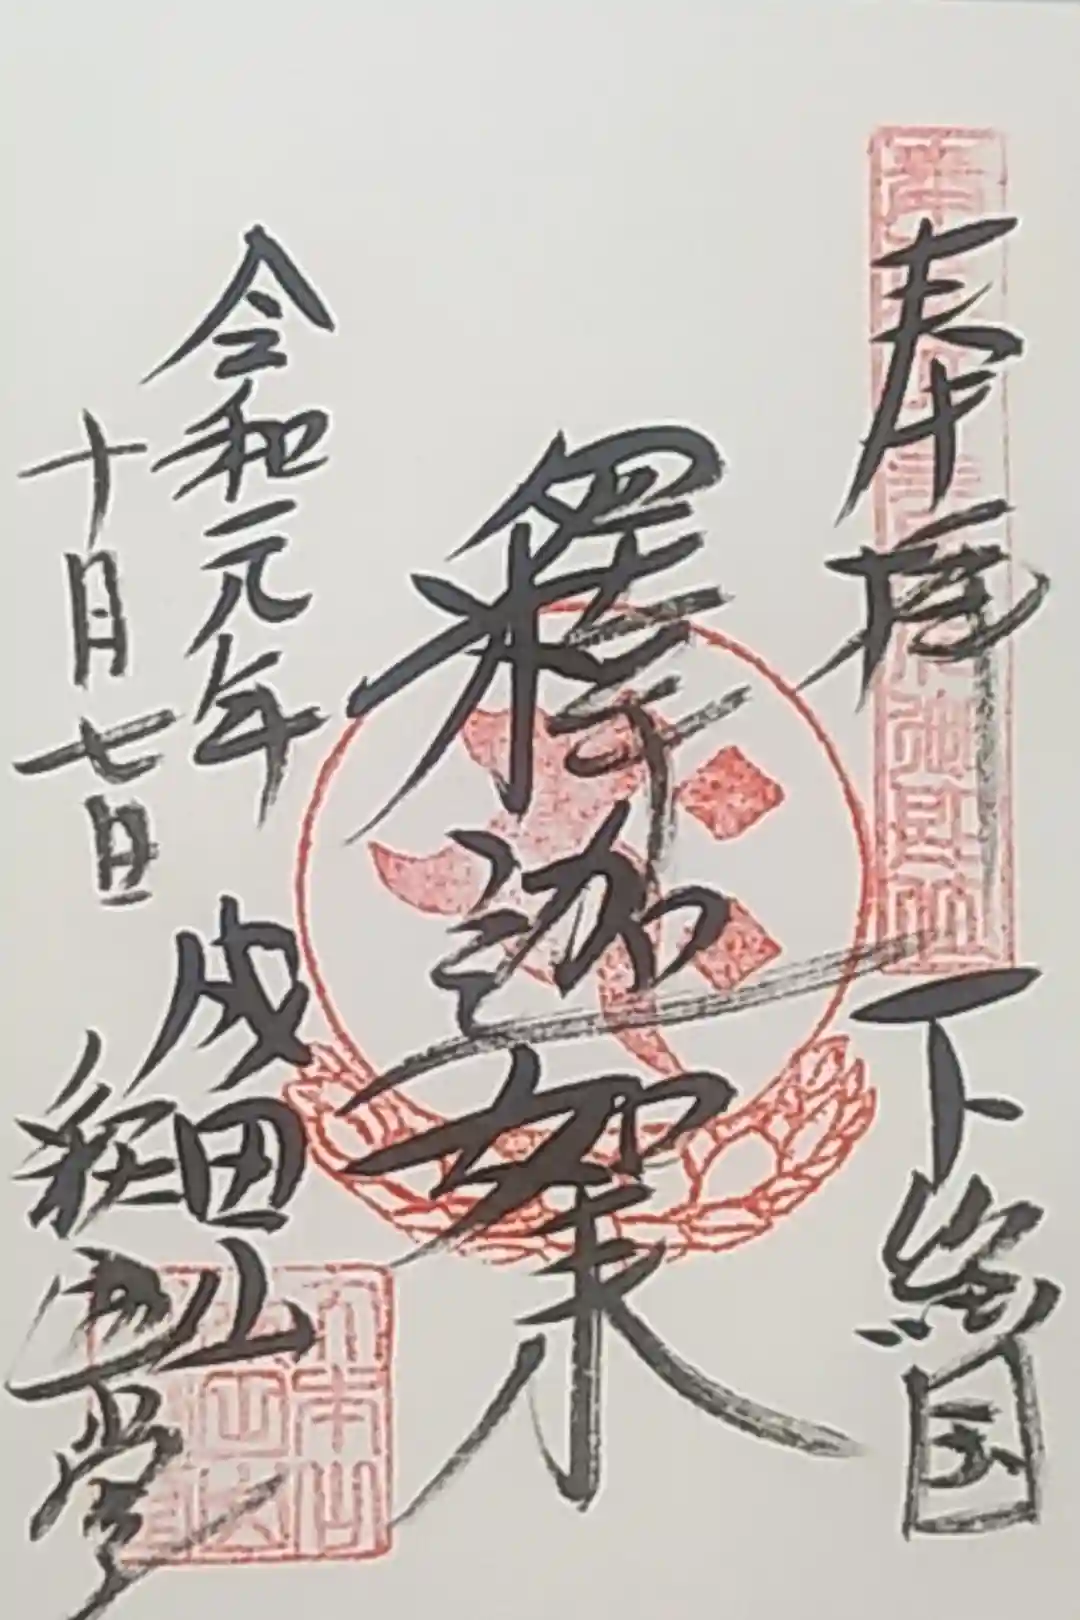 奉拝 下総国
釋迦如来
令和元年
十月七日
成田山
釈迦堂